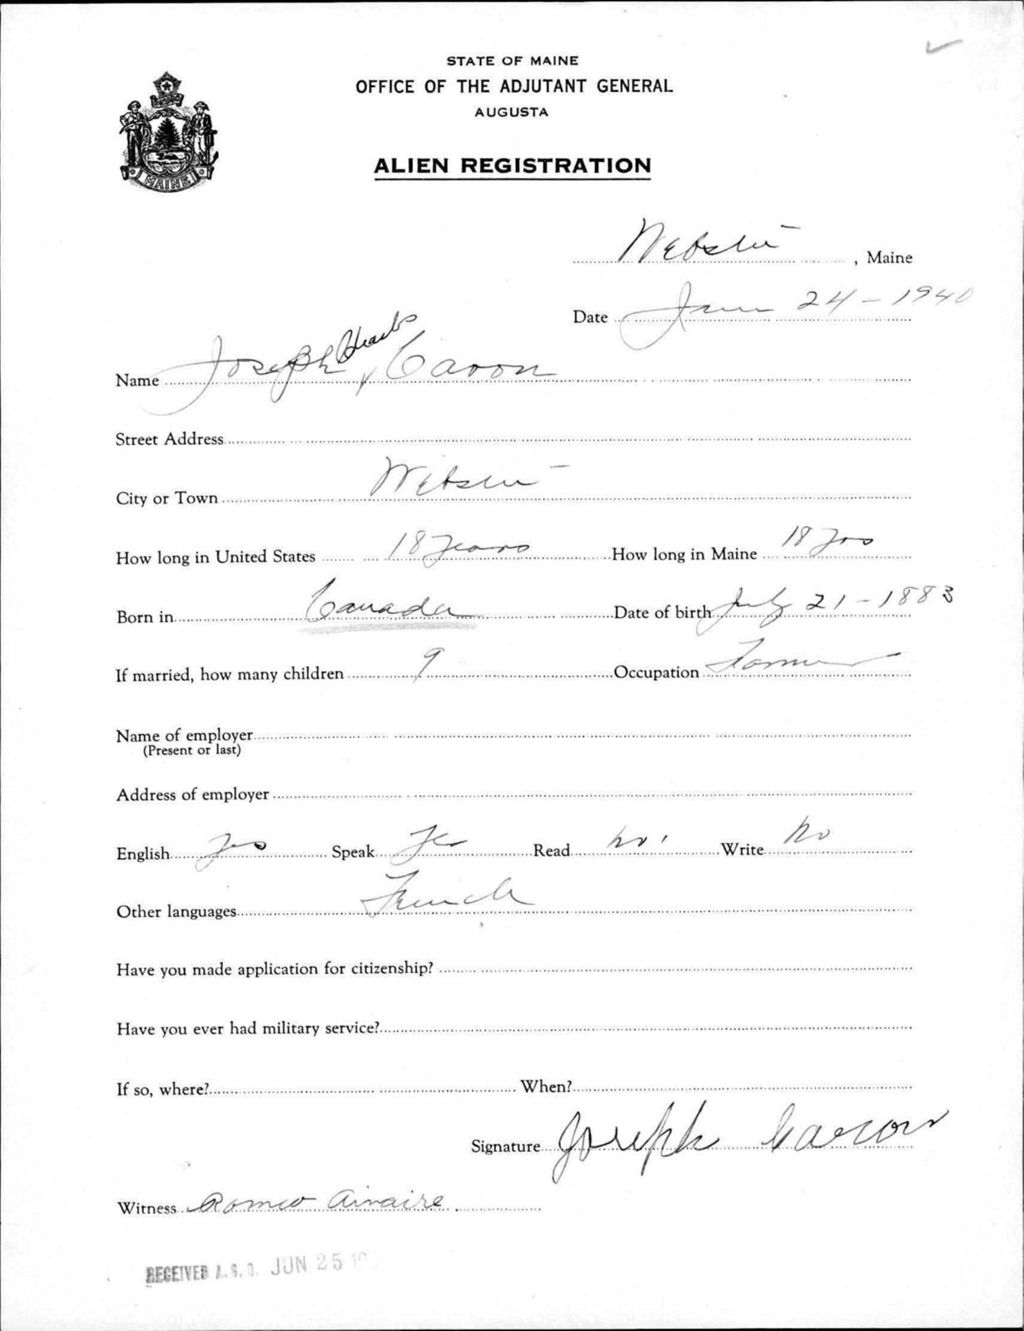 STATE OF MAINE
OFFICE OF THE ADJUTANT GENERAL
AUGUSTA
ALIEN REGISTRATION
MAINE
Webster, Maine
Date June 24-1940
Name Joseph Charles Caron
Street Address
City or Town Webster
How long in United States 18 years How long in Maine 18 yrs
Born in Canada Date of birth July 21-1883
If married, how many children 9 Occupation Farmer
Name of employer
(Present or last)
Address of employer
English Yes Speak Yes Read no Write No
Other languages French
Have you made application for citizenship?
Have you ever had military service?
If so, where? When?
Signature Joseph Caron
Witness Romeo
RECEIVED A.G.O. JUN 25